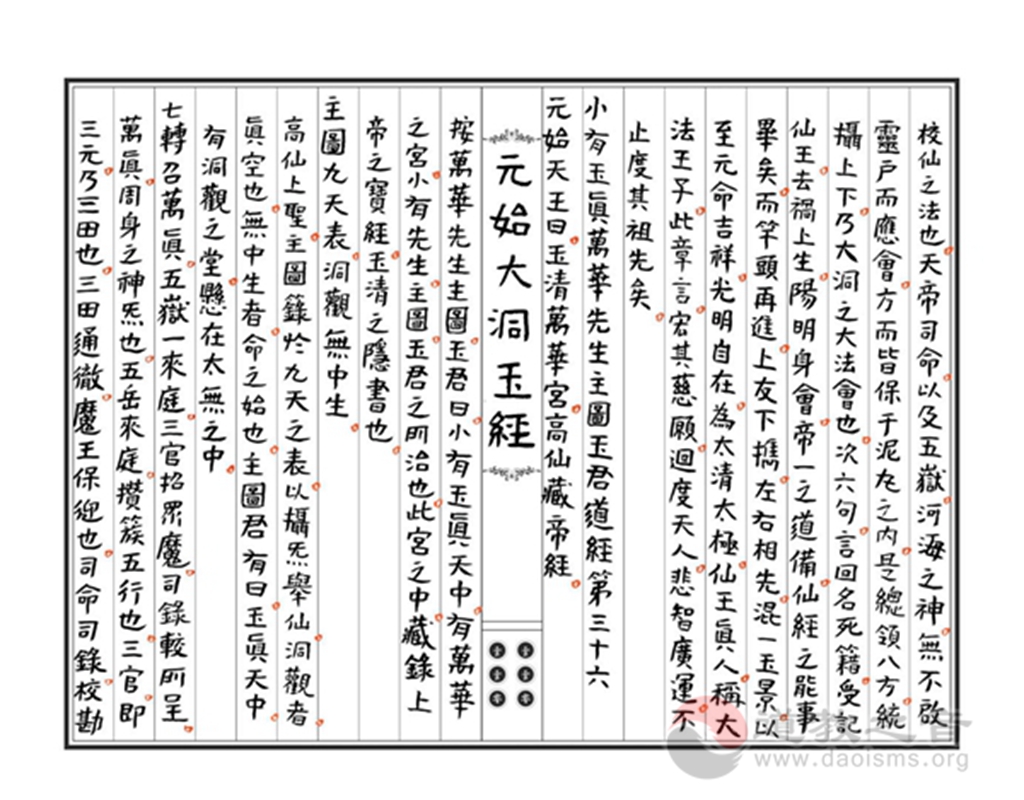 校仙之法也天帝司命以及五嶽河海之神無不啟
靈戶而應會方而皆保于泥丸之内是總領八方統
攝上下乃大洞之大法會也次六句言回名死籍受記
仙王去禍上生陽明身會帝一之道備仙經之能事
畢矣而竿頭再進上友下攜左右相先混一玉景以
至元命吉祥光明自在為太清太極仙王眞人稱大
法王子此章言宏其慈願迴度天人悲智廣運不
止度其祖先矣
小有玉眞萬華先生主圖玉君道經第三十六
元始天王曰玉清萬華宮高仙藏帝經
元始大洞玉經
按萬華先生主圖玉君曰小有玉眞天中有萬華
之宮小有先生主圖玉君之所治也此宮之中藏錄上
帝之寶經玉清之隱書也
主圖九天表洞觀無中生
高仙上聖主圖籙於九天之表以攝炁舉仙洞觀者
眞空也無中生者命之始也主圖君有曰玉眞天中
有洞觀之堂懸在太無之中
七轉召萬眞五嶽一來庭三官招眾魔司錄較所呈
萬眞周身之神炁也五岳來庭攢簇五行也三官即
三元乃三田也三田通徹魔王保迎也司命司錄校勘
道教之音
www.daoisms.org